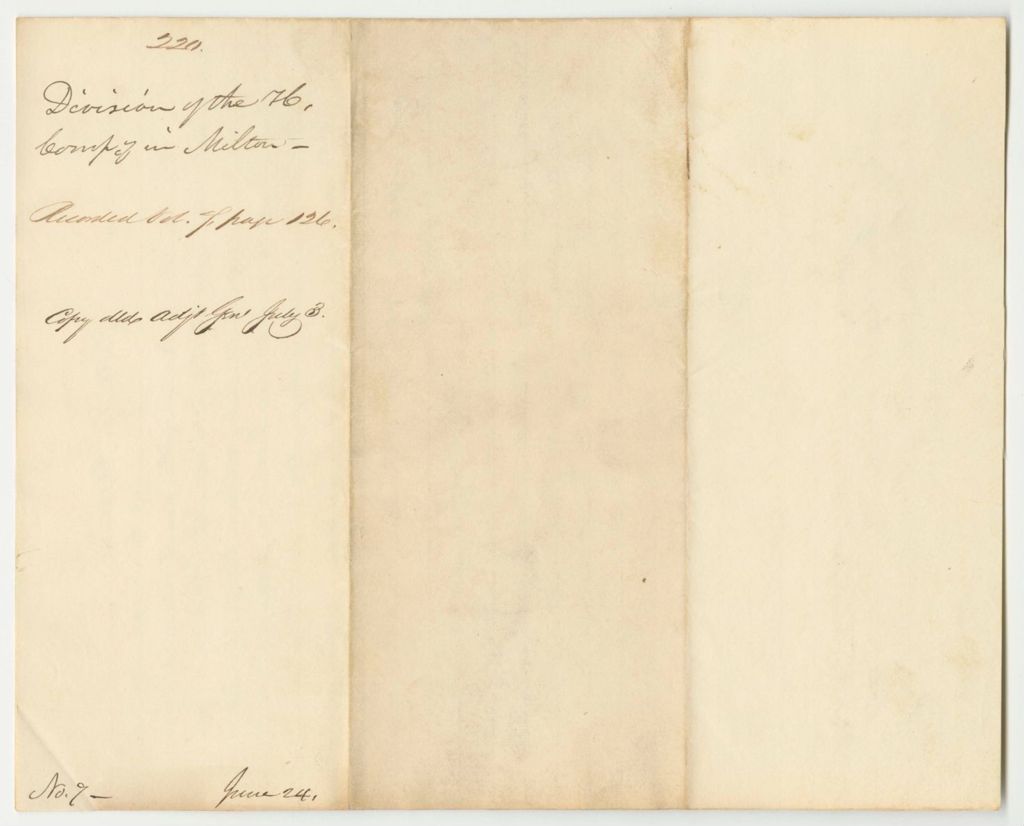 220.
Division of the 
Comp'y in Milton –
Recorded Vol. 7 page 126.
Copy dld Adjt Genl July 3.
No. 7 –
June 24.